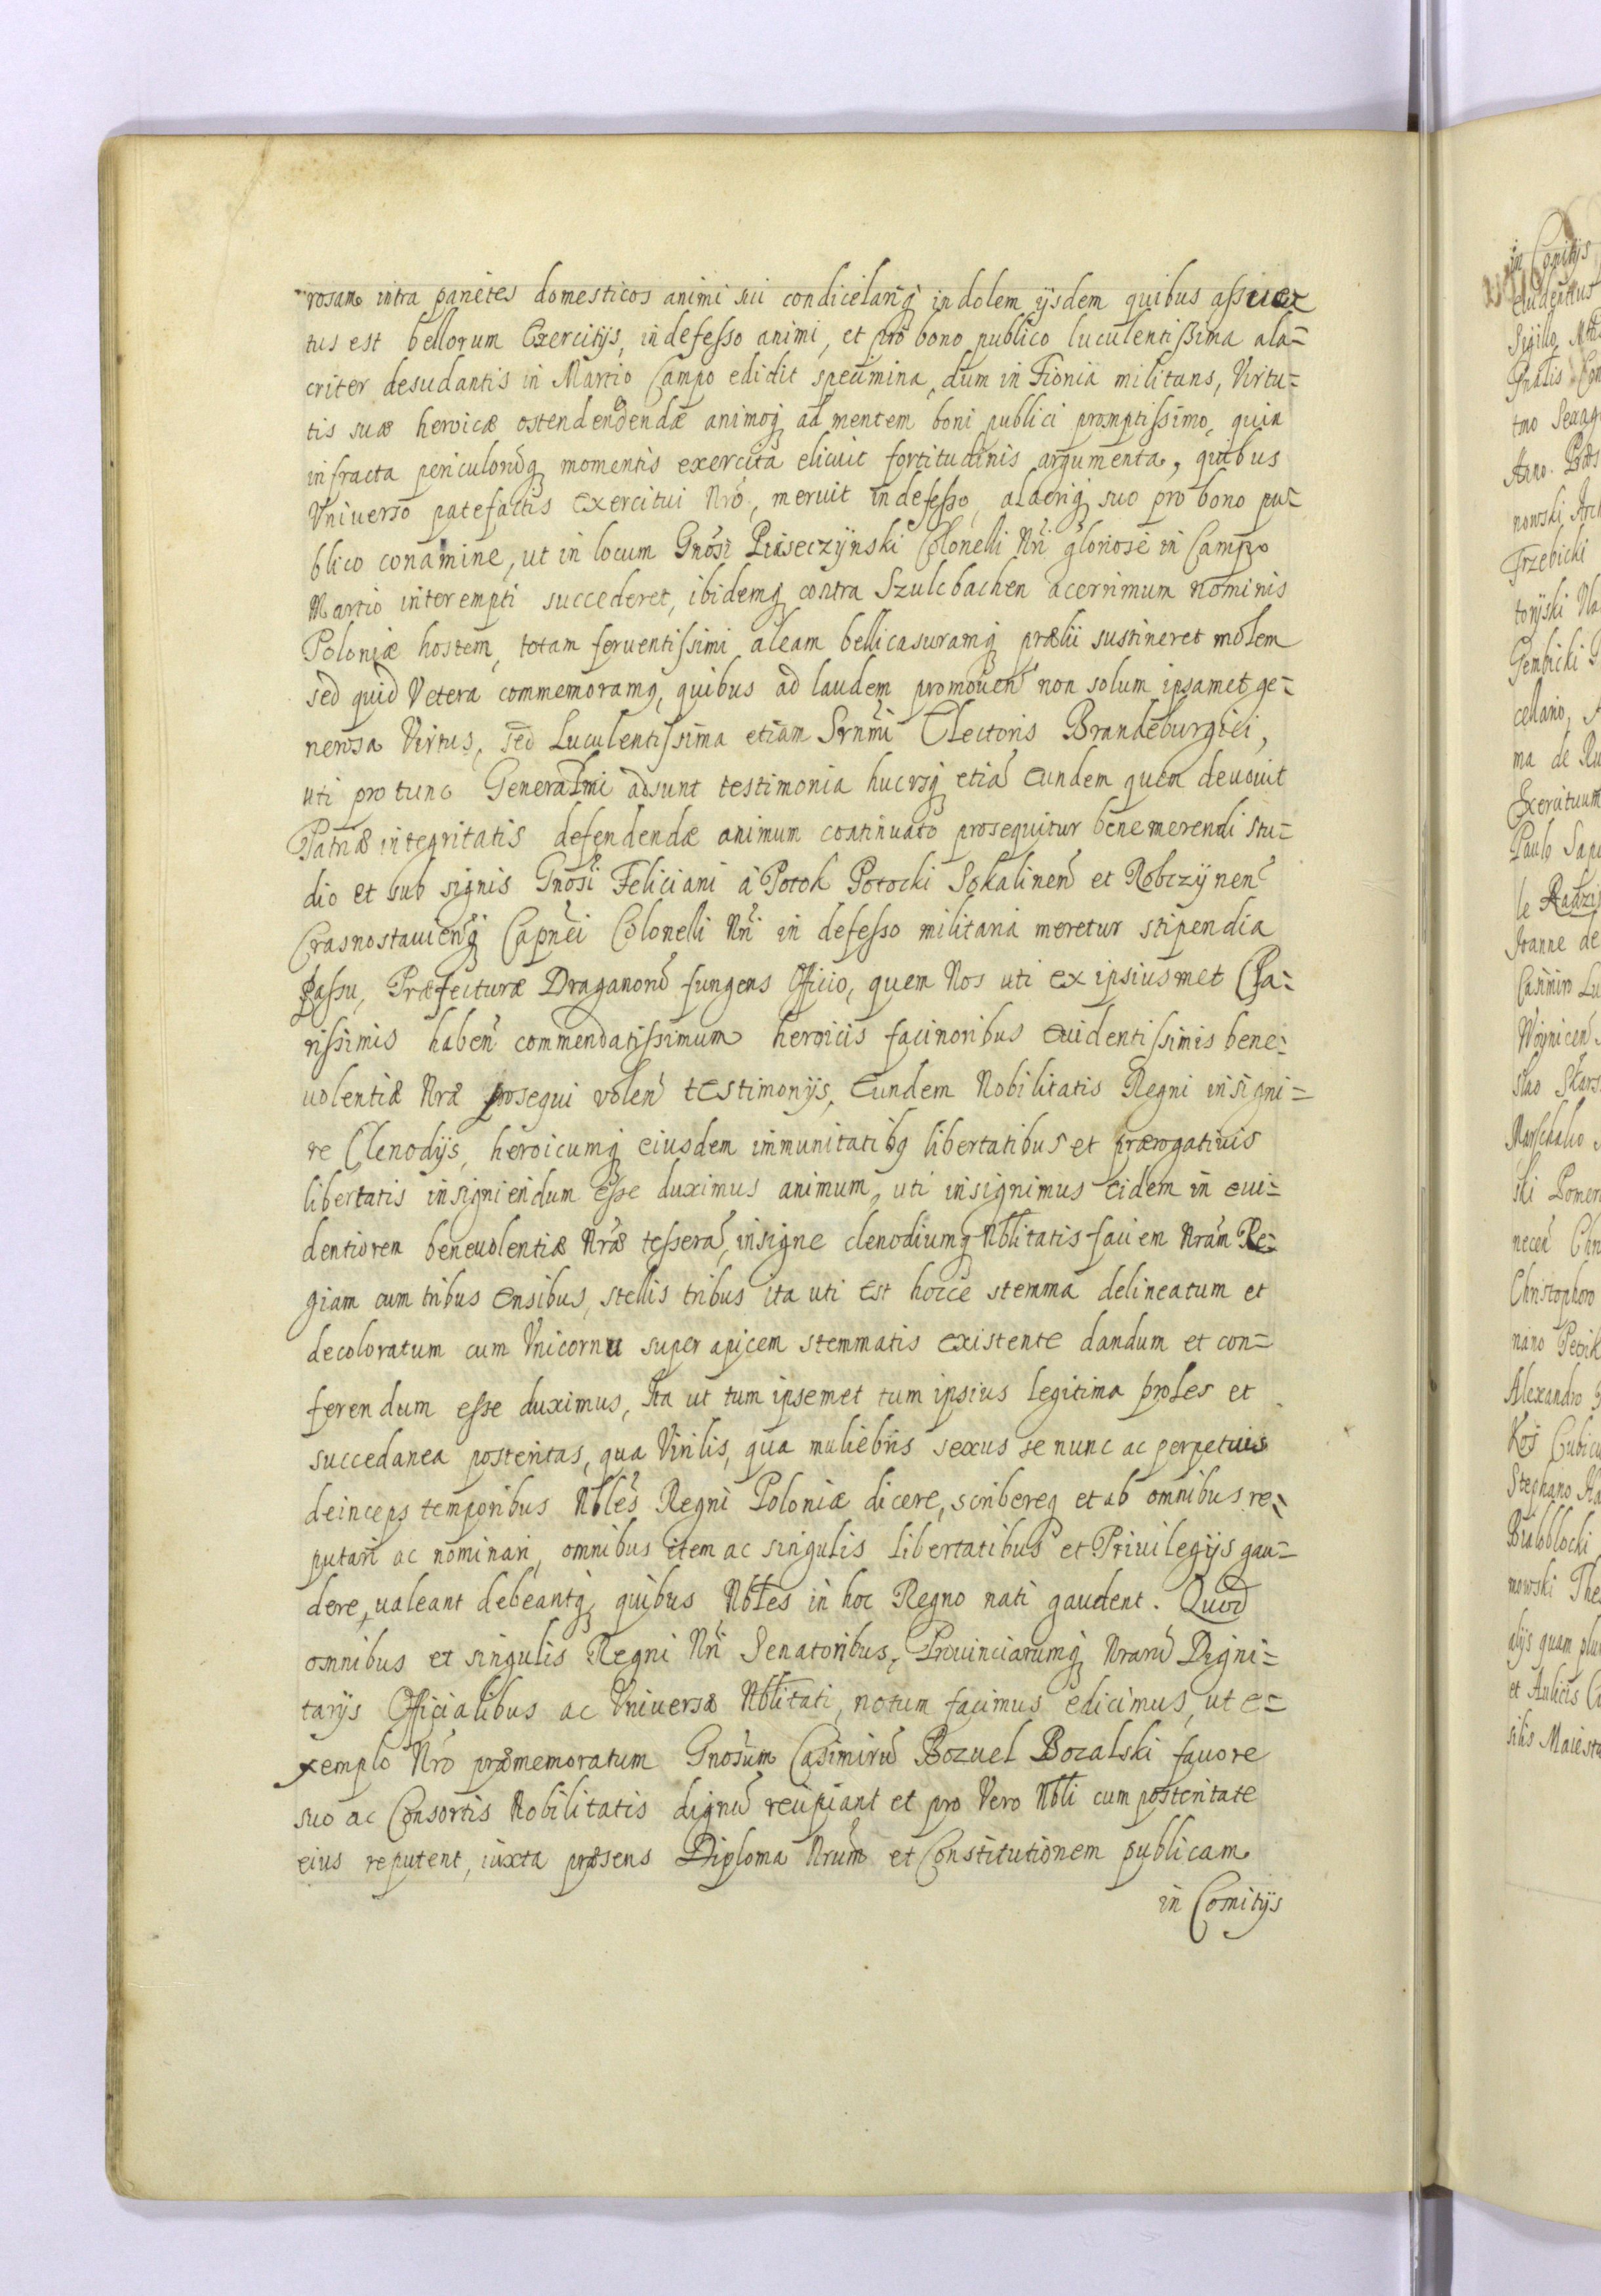 rosam intra parietes domesticos animi sui condicelariq̃ indolem ijsdem quibus assue=
tus est bellorum Exercitijs, indefesso animi, et pro bono publico luculentissima ala=
criter desudantis in Martio Campo edidit specimina, dum in Fionia militans, Virtu=
tis suæ heroicæ ostendendendæ animoq̃ ad mentem boni publici promptissimo, quia
infracta periculorũq̃ momentis exercita elicuit fortitudinis argumenta, quibus
Vniverso patefactis Exercitui Nrõ, meruit indefesso, alacriq̃ suo pro bono pu=
blico conamine, ut in locum Gnõsi Piaseczÿnski Colonelli Nri gloriose in Campo
Martio interempti succederet, ibidemq̃ contra Szulcbachen acerrimum Nominis
Poloniæ hostem, totam feruentissimi aleam bellicasuramq̃ prælii sustineret molem
sed quid Vetera commemoramq̃, quibus ad laudem promouen̄ non solum ipsamet ge=
nerosa Virtus, sed Luculentissima etiam Srnmi Electoris Brandeburgici,
uti pro tunc Generalmi adsunt testimonia hucusq̃ etiã eundem quem deuouit
Patriæ integritatis defendendæ animum continuato prosequitur bene merendi stu=
dio et sub signis Gnõsi Feliciani à Potok Potocki Sokalinen̄ et Robczÿnen̄
Crasnostauien̄q̃ Capnei Colonelli Nri in defesso militaria meretur stipendia
passu, Præfecturæ Draganorũ fungens Officio, quem Nos uti ex ipsiusmet Cla=
rissimis haben̄ commendatissimum heroicis facinoribus euidentissimis bene=
uolentiæ Nræ prosequi volen̄ testimonijs, Eundem Nobilitatis Regni insigni=
re Clenodijs, heroicumq̃ eiusdem immunitatibq̃ libertatibus et prærogatiuis
libertatis insigniendum esse duximus animum, uti insignimus eidem in eui=
dentiorem beneuolentiæ Nræ tesserã, insigne clenodiumq̃ Nblitatis faciem Nram Re=
giam cum tribus Ensibus, stellis tribus ita uti est hocce stemma delineatum et
decoloratum cum Vnicornu super apicem stemmatis existente dandum et con=
ferendum esse duximus, Ita ut tum ipsemet tum ipsius legitima proles et
succedanea posteritas, qua Virilis, qua muliebris sexus se nunc ac perpetuis
deinceps temporibus Nbles Regni Poloniæ dicere, scribereq̃ et ab omnibus re=
putari ac nominari, omnibus item ac singulis Libertatibus et Priuilegijs gau=
dere, ualeant debeantq̃, quibus Nbles in hoc Regno nati gaudent. Quod
omnibus et singulis Regni Nri Senatoribus, Prouinciarumq̃ Nrarũ Digni=
tarijs Officialibus ac Vniuersæ Nblitati, notum facimus edicimus, ut e=
xemplo Nrõ præmemoratum Gnõsum Casimirũ Bozuel Bozalski fauore
suo ac Consortis Nobilitatis dignũ recipiant et pro Vero Nbli cum posteritate
eius reputent, iuxta præsens Diploma Nrum et Constitutionem publicam
in Comitijs